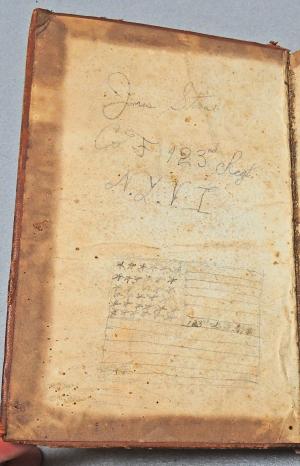 James
Co F 123rd Regt
N.Y.V.I
123